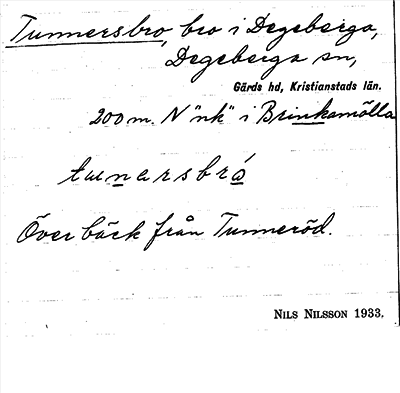 Tunnersbro, bro i Degeberga,
Degeberga sn,
Gärds hd, Kristianstads län.
200 m. N "nk" i Brinkamölla
Över bäck från Tunneröd.
NILS NILSSON 1933.